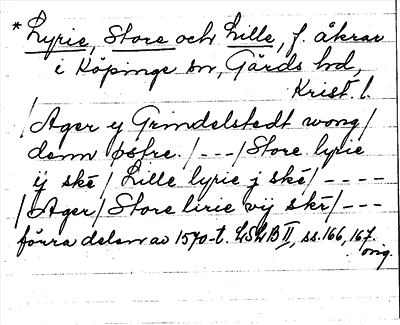 * Lyrie, Store och Lille, f. åkrar
i Köpinge sn, Gärds hd,
Krist. l.
/Ager y Grindelstedt wong/
denn østre./---/Store lyrie
ij ské/ Lille lyrie j ské/----
/Ager/ Store lirie vij skr/---
förra delen av 1570-t. LSLB II, ss. 166, 167.
orig.